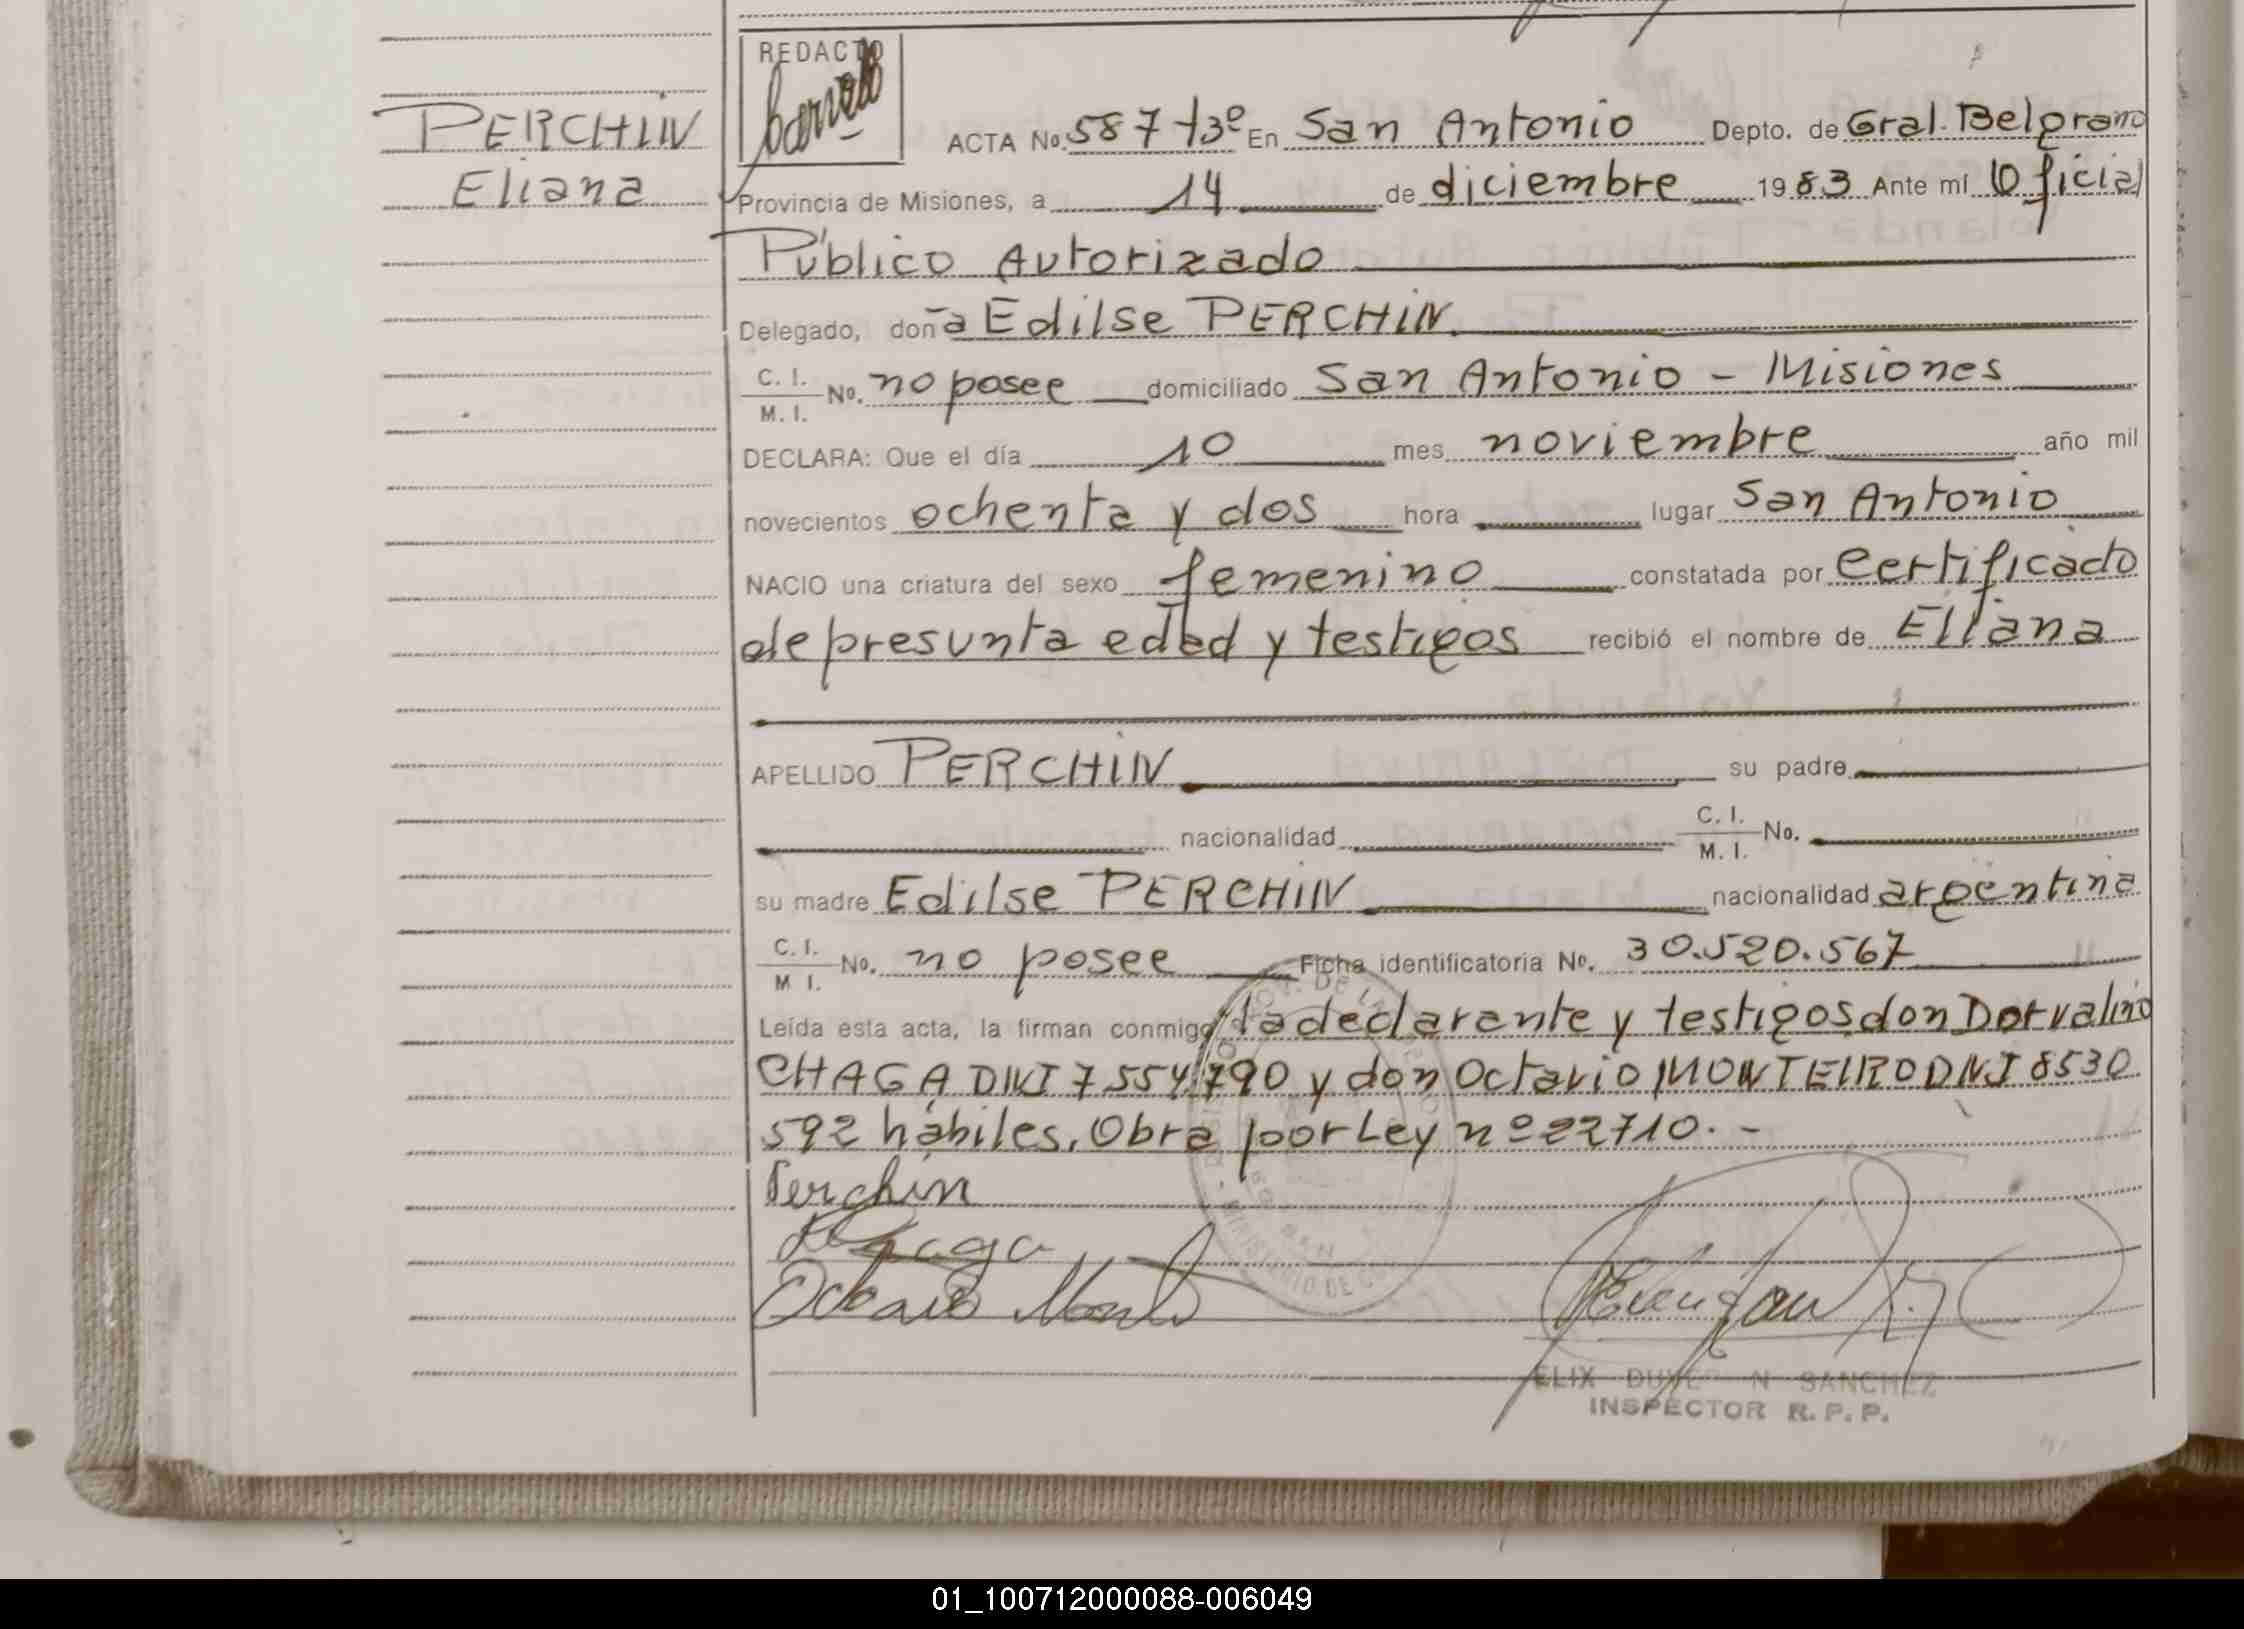 REDACTO
PERCHIN
Eliana
ACTA No. 587 t3º En San Antonio Depto. de Gral. Belgrano
Provincia de Misiones, a 14 de diciembre 1983 Ante mí Oficial
Público Autorizado
Delegado, doña Edilse PERCHIN.
C. I. / M. I. No. no posee domiciliado San Antonio - Misiones
DECLARA: Que el día 10 mes noviembre año mil
novecientos ochenta y dos hora lugar San Antonio
NACIO una criatura del sexo femenino constatada por Certificado
de presunta edad y testigos recibió el nombre de Eliana
APELLIDO PERCHIN su padre
nacionalidad C. I. / M. I. No.
su madre Edilse PERCHIN nacionalidad argentina
C. I. / M. I. No. no posee Ficha identificatoria No. 30.520.567
Leída esta acta, la firman conmigo la declarante y testigos don Dorvalino
CHAGA DNI 7554790 y don Octavio MONTEIRO DNI 8530
592 hábiles. Obra por Ley nº 22710. -
Perchin
Chaga
Octavio
SANCHEZ
INSPECTOR R. P. P.
01_100712000088-006049